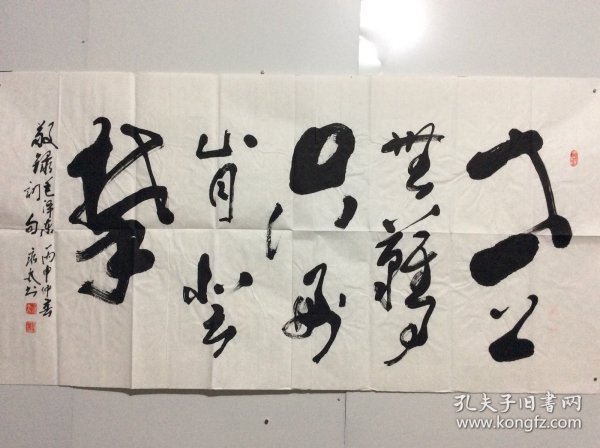 世上
無難事
只要
肯登
攀
敬録毛泽东
词句
丙申仲春
孔夫子旧书网
www.kongfz.com